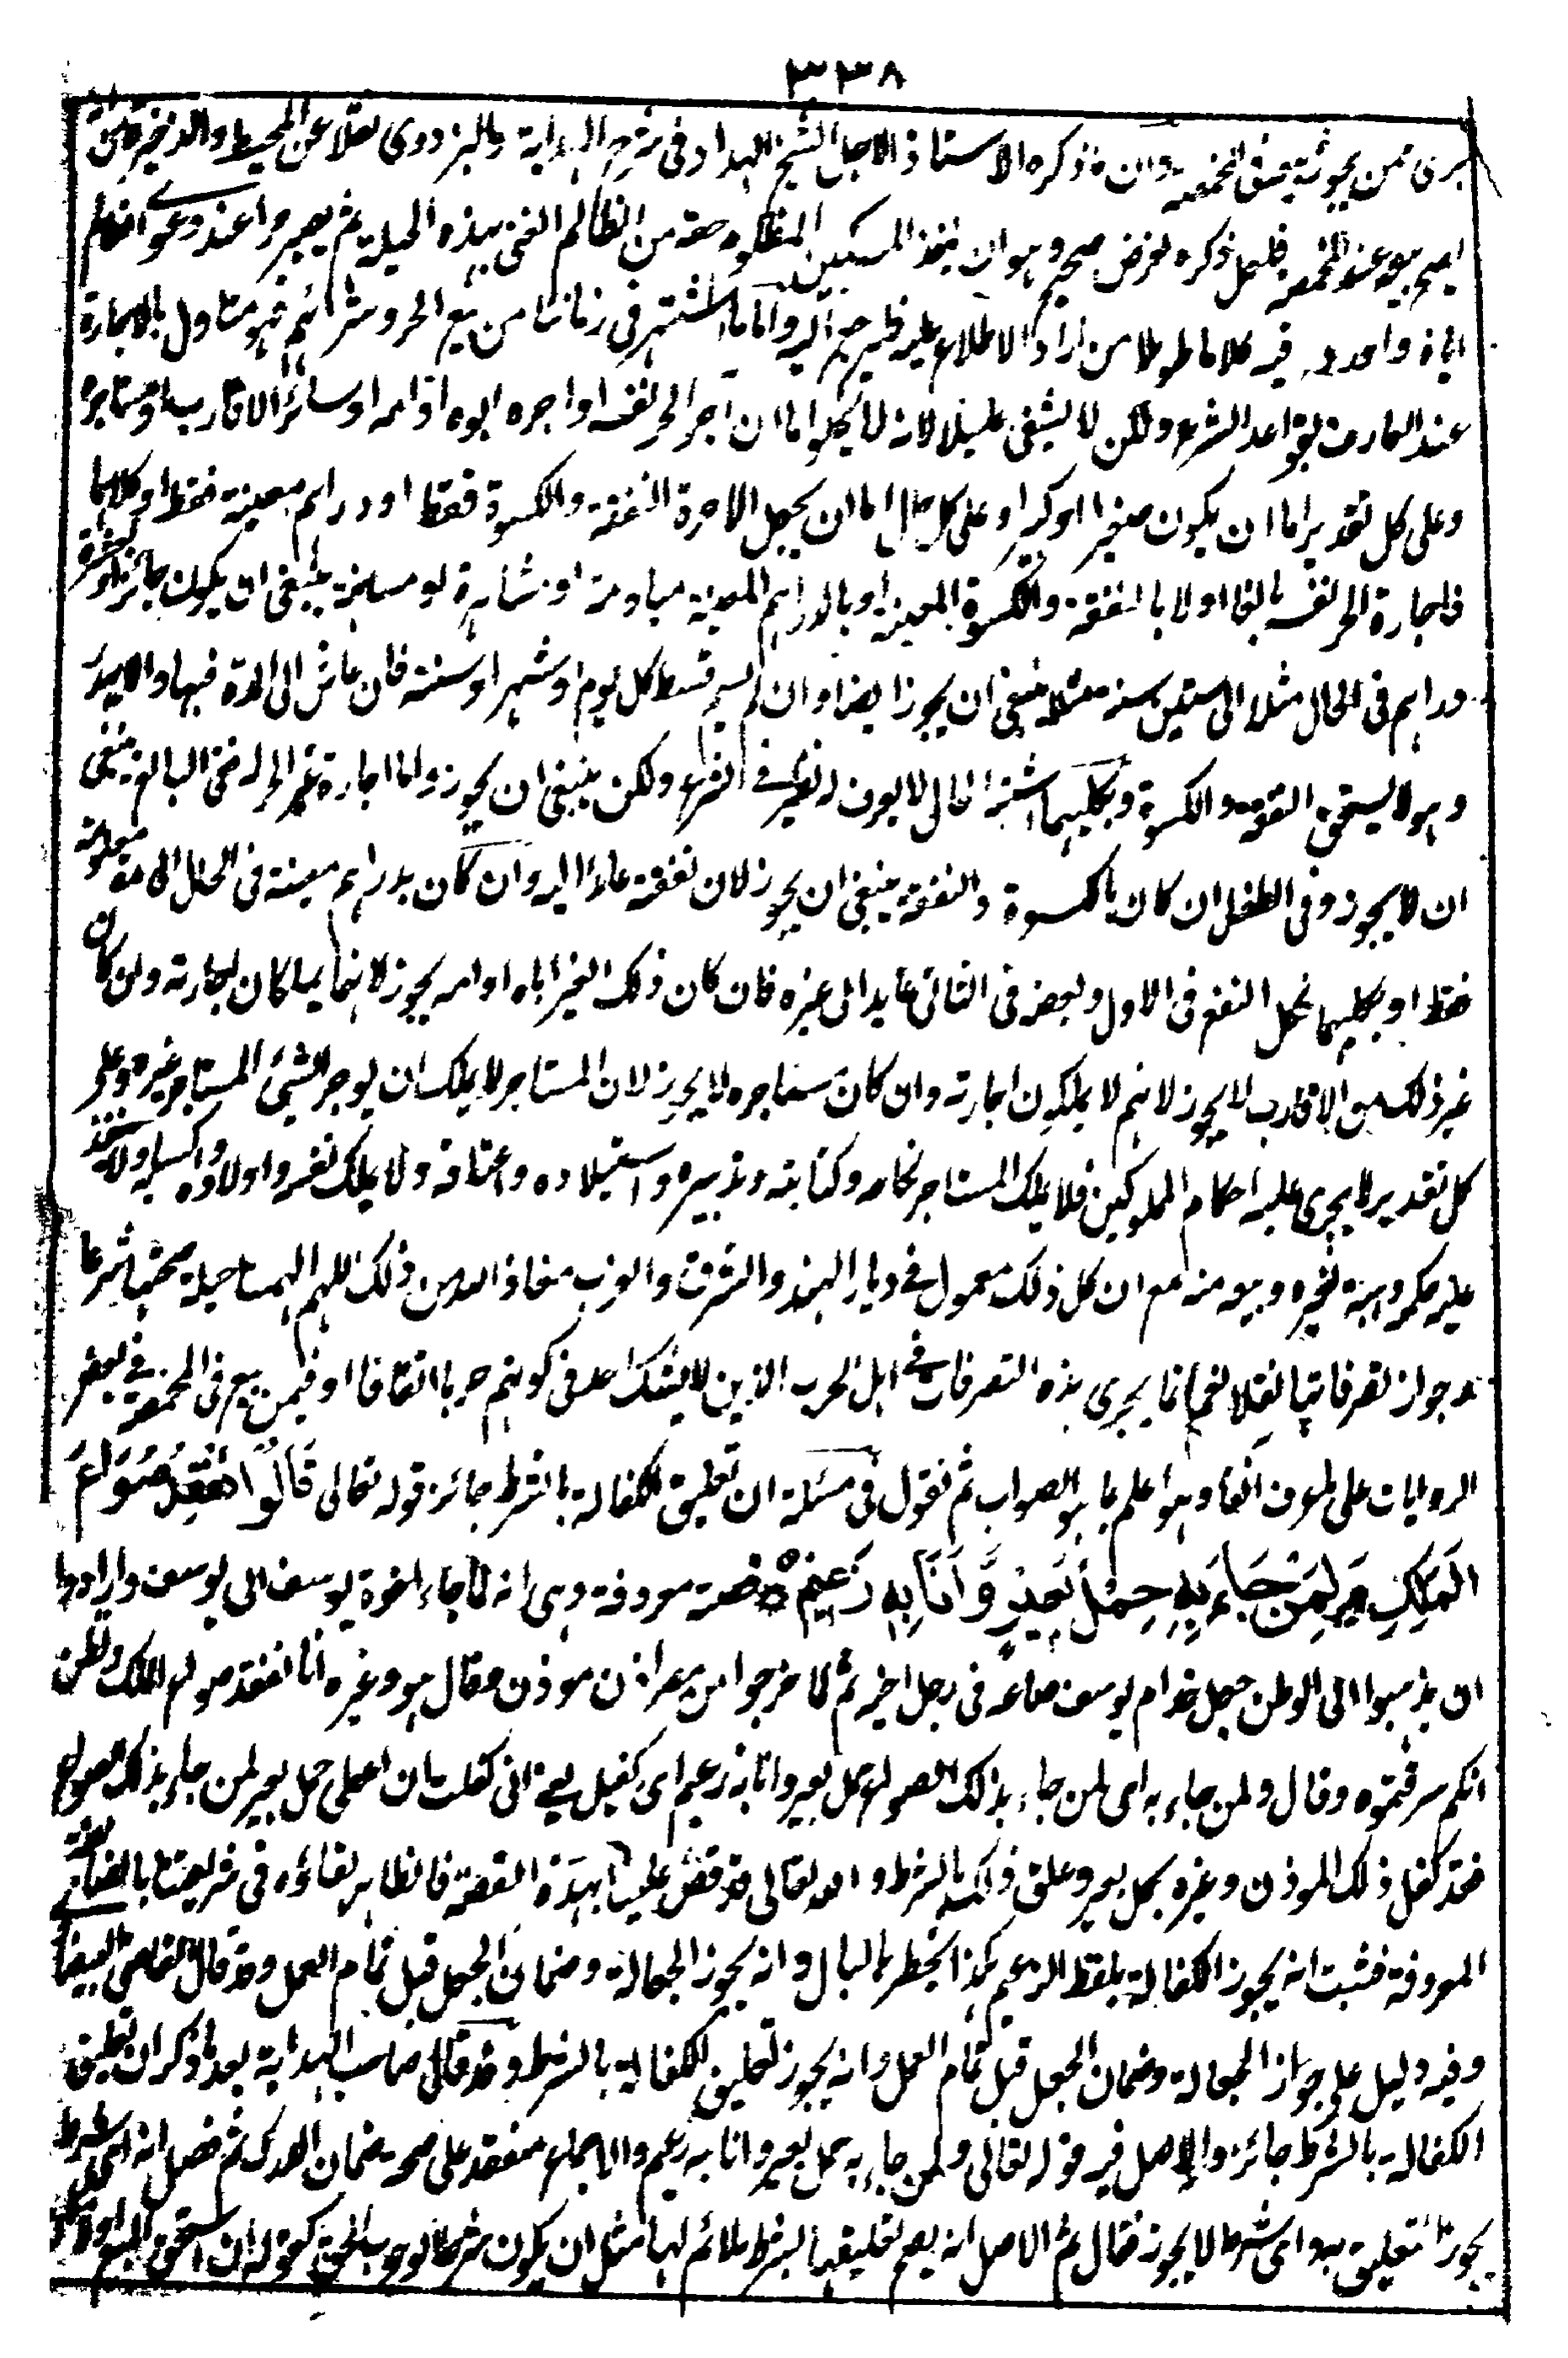 ٣٣٨
وان ذكره الاستاذ الاجل الشيخ الهداد فى شرح الهداية والبزدوى نقلا عن المحيط والذخيرة
بيعه عند المخمصة فلعل ذكره لغرض صحيح وهو ان ياخذ المسكين المظلوم حقه من الظالم الغنى بهذه الحيلة ثم
فيه كلاما طويلا من اراد الاطلاع عليه فليرجع اليه واما ما اشتهر فى زماننا من بيع الحر وشرائهم فهو متاول بالاجارة
عند العارف بقواعد الشرع ولكن لا يشفى عليلا لانه لا يخلو اما ان آجر الحر نفسه او اجره ابوه او امه او سائر الاقارب او مستاجره
وعلى كل تقدير اما ان يكون صغيرا او كبيرا وعلى كل حال اما ان يجعل الاجرة النفقة والكسوة فقط او دراهم معينة فقط او كلاهما
فاجارة الحر نفسه بالغا اولا بالنفقة والكسوة المعينة او بالدراهم المعينة مياومة او مشاهرة او مسانهة ينبغى ان يكون جائزا
دراهم فى الحال مثلا الى ستين سنة مثلا ينبغى ان يجوز ايضا وان لم يسم قسط كل يوم او شهر او سنة فان عاش الى المدة فبها
وهو لا يستحق النفقة والكسوة وبكليهما اشتبه الحال لا يعرف له نظير فى الشرع ولكن ينبغى ان يجوز واما اجارة غير الحر له ففى البالغ ينبغى
ان لا يجوز وفى الطفل ان كان بالكسوة والنفقة ينبغى ان يجوز لان نفعه عائد اليه وان كان بدراهم معينة فى الحال الى مدة معلومة
فقط او بكليهما فكل النفع فى الاول وبعضه فى الثانى عايد الى غيره فان كان ذلك الغير اباه او امه يجوز لانهما يملكان اجارته وان كان
غير ذلك من الاقارب لا يجوز لانهم لا يملكون اجارته وان كان مستاجره لا يجوز لان المستاجر لا يملك ان يوجر الشئ المستاجر غيره وعلى
كل تقدير لا يجرى عليه احكام المملوكين فلا يملك المستاجر نكاحه وكتابته وتدبيره واستيلاده واعتاقه ولا يملك نفسه واولاده
عليه كرها وهبة لغيره وبيعه منه مع ان كل ذلك معمول فى ديار الهند والشرق والغرب معاذ الله من ذلك اللهم الهمنا حيلة
جواز تصرفاتها فانما يجرى هذه التصرفات فى اهل الحرب الذين لا يشك احد فى كونهم حربا اتفاقا او فيمن بيع فى المخمصة فى بعض
الروايات على ما عرف آنفا وهو اعلم بما هو الصواب ثم نقول فى مسئلة ان تعليق الكفالة بالشرط جائز قوله تعالى قَالُوْا نَفْقِدُ صُوَاعَ
الْمَلِكِ وَلِمَنْ جَاءَ بِهٖ حِمْلُ بَعِيْرٍ وَّ اَنَا بِهٖ زَعِيْمٌ قصته معروفة وهى انه لما جاء اخوة يوسف الى يوسف وارادوا
ان يذهبوا الى الوطن جعل خدام يوسف صاعه فى رحل اخيه ثم لما خرجوا من مصر اذن موذن وقال هو وغيره انا نفقد صواع الملك ونظن
انكم سرقتموه وقال ولمن جاء به اى لمن جاء بذلك الصواع حمل بعير وانا به زعيم اى كفيل يعنى انى كفلت بان اعطى حمل بعير لمن جاء بذلك الصواع
فقد كفل ذلك الموذن وغيره بحمل بعير وعلق ذلك بالشرط والله تعالى قد قص علينا بهذه القصة فالظاهر بقاؤه فى شريعتنا
المعروفة فثبت انه يجوز الكفالة بلفظ الزعيم هكذا يخطر بالبال وانه يجوز الجعالة وضمان الجعل قبل تمام العمل وقد قال القاضى البيضاوى
وفيه دليل على جواز الجعالة وضمان الجعل قبل تمام العمل وانه يجوز تعليق الكفالة بالشرط وقد قال صاحب الهداية بعد ما ذكر ان تعليق
الكفالة بالشرط جائز والاصل فيه قوله تعالى ولمن جاء به حمل بعير وانا به زعيم والاجماع منعقد على صحة ضمان الدرك ثم فصل انه اى شرط
يجوز التعليق به واى شرط لا يجوز فقال ثم الاصل انه يصح تعليقها بشرط ملائم لها مثل ان يكون شرطا لوجوب الحق كقوله اذا استحق المبيع